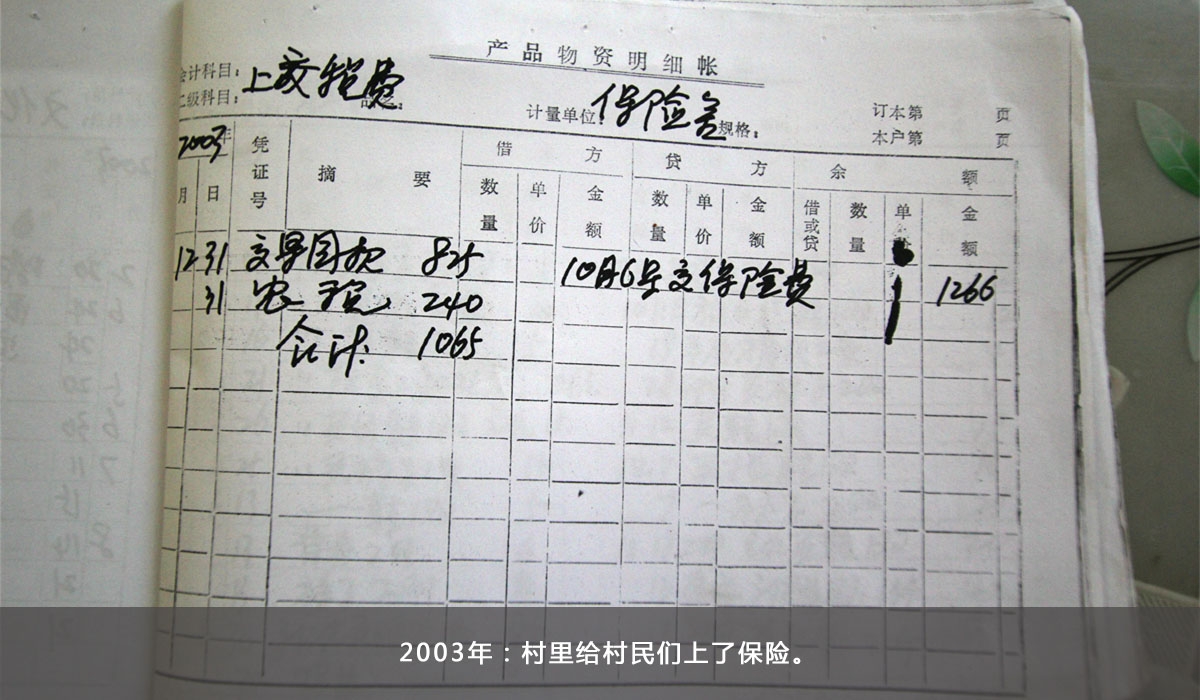 产品物资明细帐
会计科目：上交税费
二级科目：
计量单位 保险盖 规格：
订本第 页
本户第 页
2003年 凭证号 摘要 借方 贷方 余额
月 日 数量 单价 金额 数量 单价 金额 借或贷 数量 单 金额
12 31 825 10月6号交保险费 1266
31 农税 240
合计: 1065
2003年：村里给村民们上了保险。